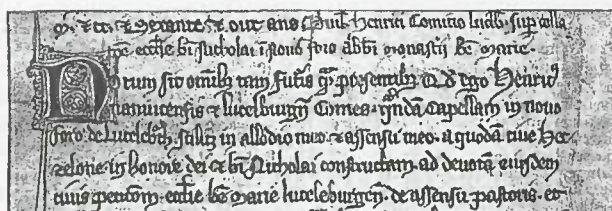 Henrici lucelb. sup colla
eccłie bi Nicholai i nouo foro abbti monastii be marie.
Notum sit omnib; tam futis qm presentib; Qd ego Henricꝰ
namucensis & lucelburgn Comes. quandā Capellam in nouo
foro de in allodio meo. & assensu meo. a quodā ciue Hec
zelone. in honore dei & bi Nicholai constructam. ad deuotā eiusdem
ciuis eccłie be marie luceleburgeñ. de assensu pastoris. et